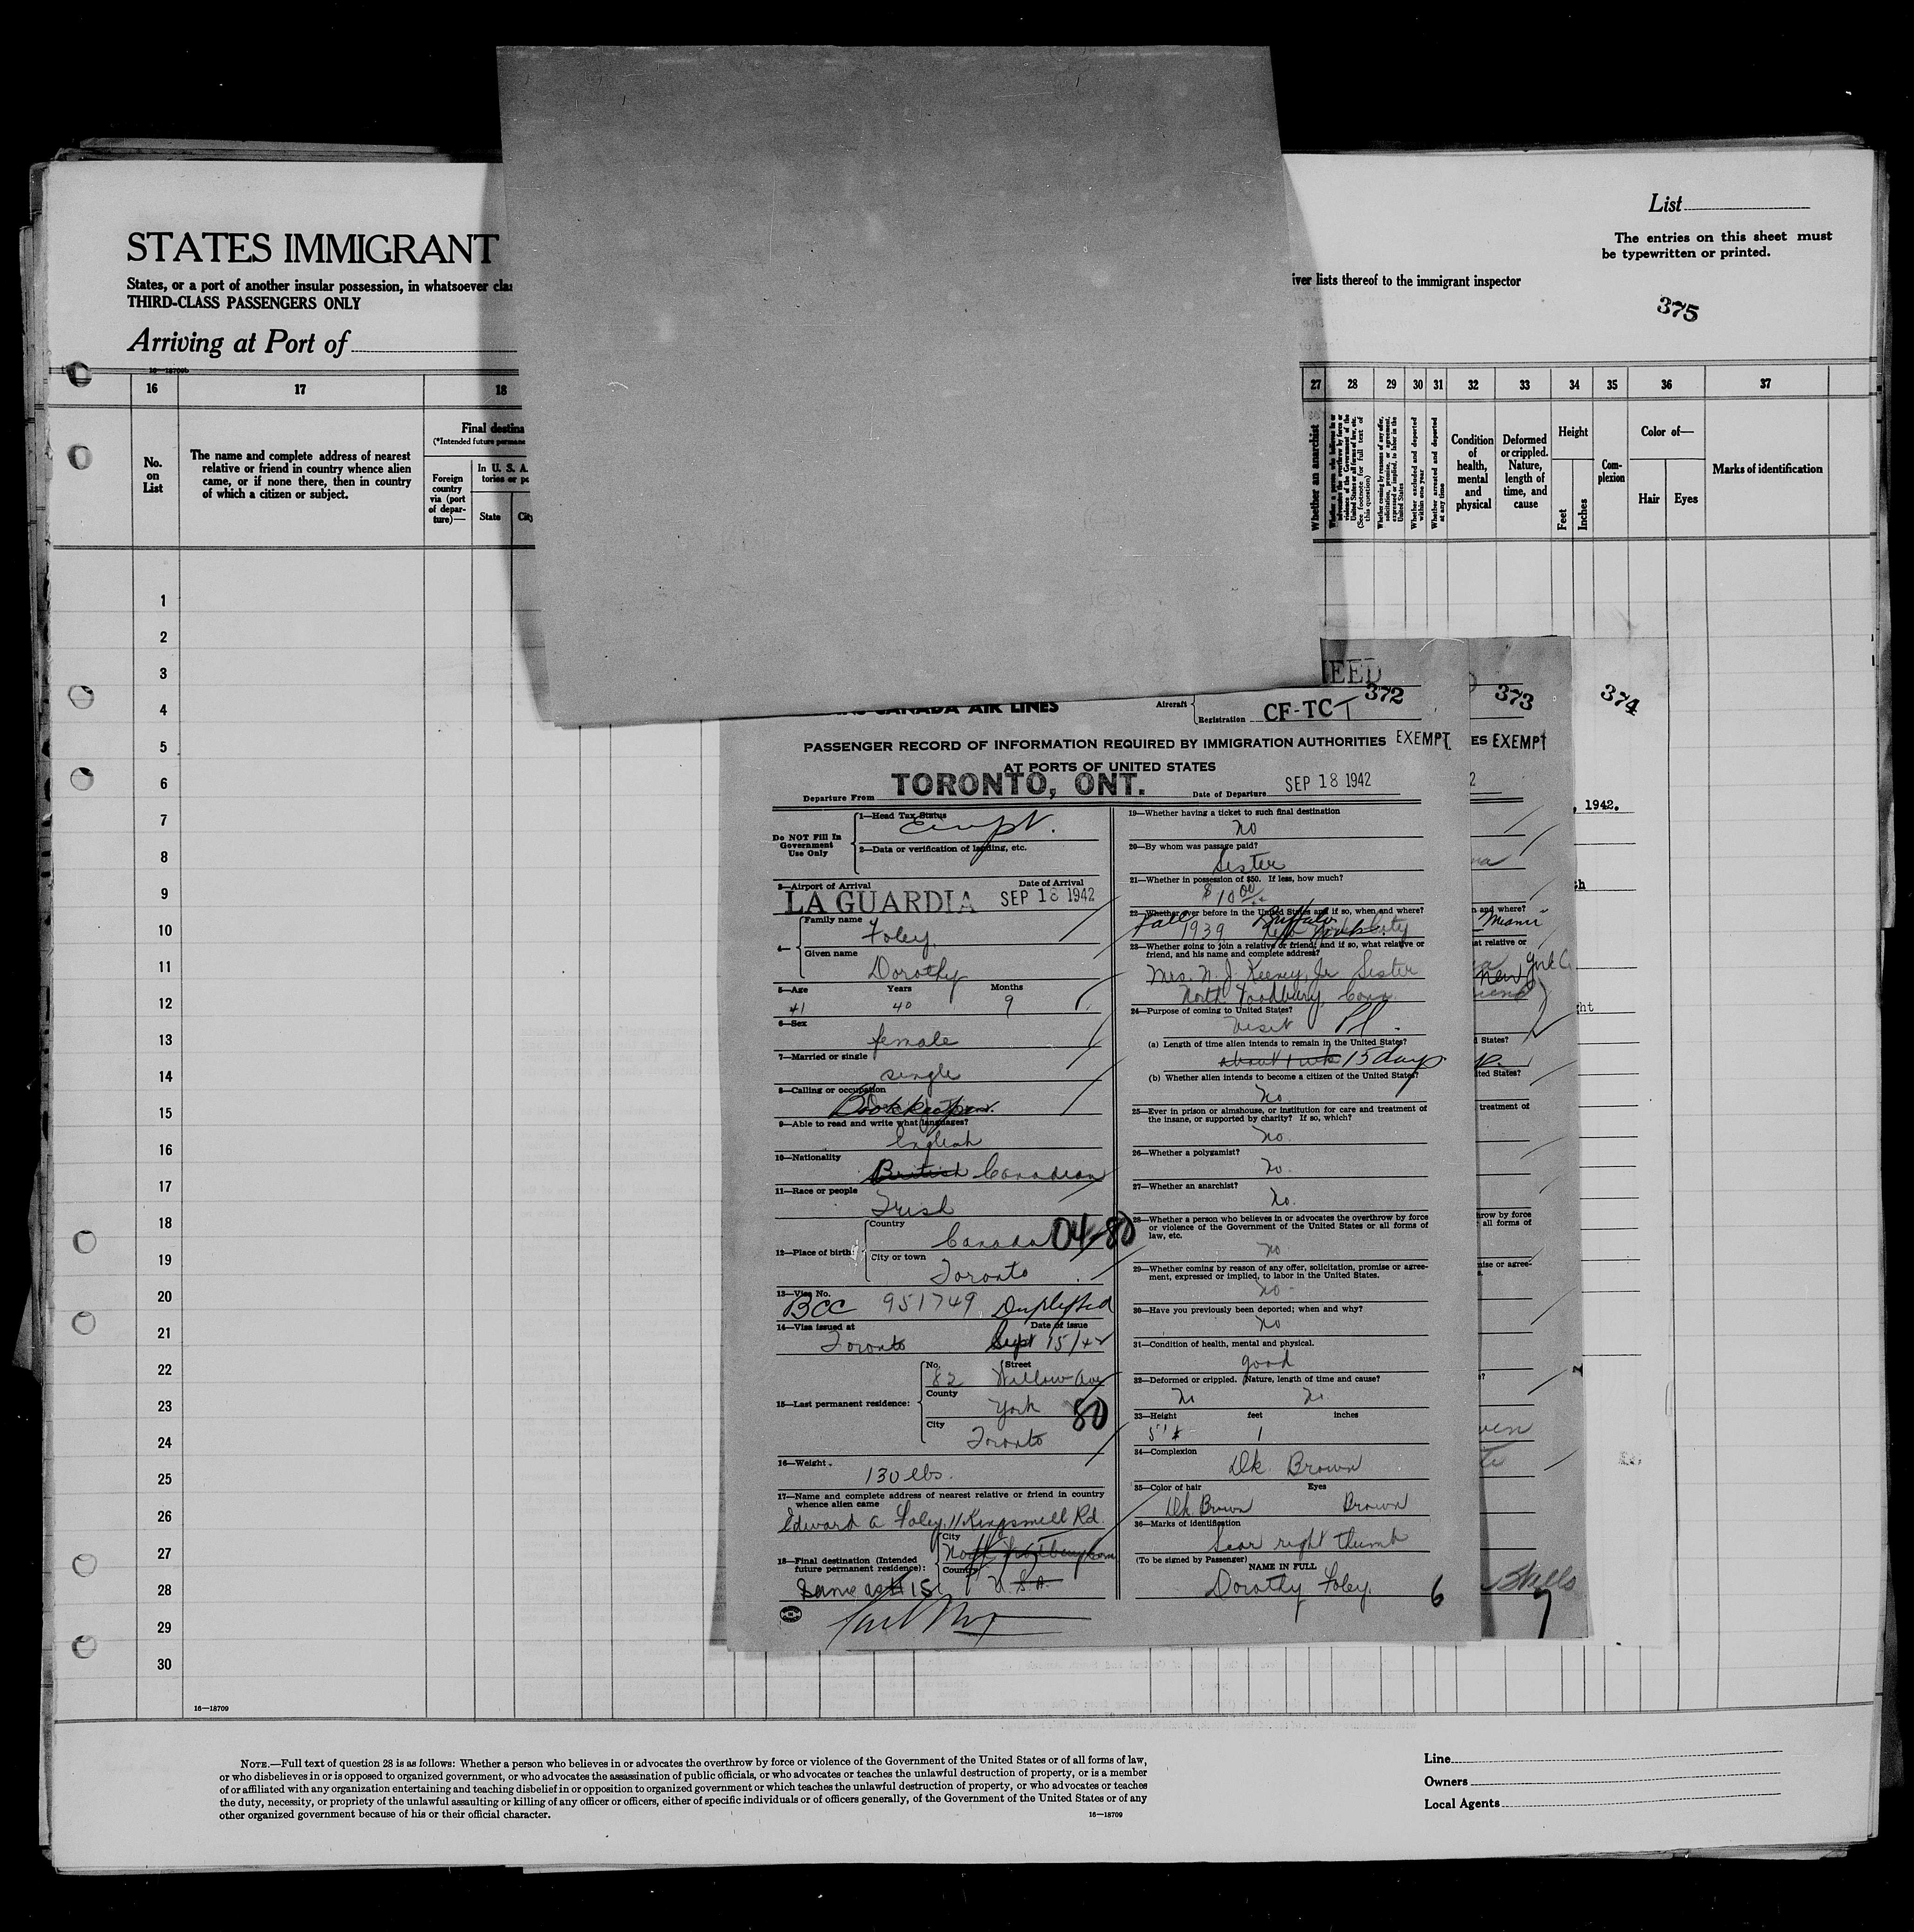 List
The entries on this sheet must
be typewritten or printed.
STATES IMMIGRANT
States, or a port of another insular possession, in whatsoever cla
iver lists thereof to the immigrant inspector
THIRD-CLASS PASSENGERS ONLY
375
Arriving at Port of
16—18709b
16 17 18 27 28 29 30 31 32 33 34 35 36 37
No.
on
List
The name and complete address of nearest
relative or friend in country whence alien
came, or if none there, then in country
of which a citizen or subject.
Final destina
(*Intended future permane
Foreign
country
via (port
of depar-
ture)—
In U. S. A.
tories or po
State
City
Whether an anarchist
Whether a person who believes in or
advocates the overthrow by force or
violence of the Government of the
United States or all forms of law, etc.
(See footnote for full text of
this question)
Whether coming by reasons of any offer,
solicitation, promise, or agreement,
expressed or implied, to labor in the
United States
Whether excluded and deported
within one year
Whether arrested and deported
at any time
Condition
of
health,
mental
and
physical
Deformed
or crippled.
Nature,
length of
time, and
cause
Height
Feet
Inches
Com-
plexion
Color of—
Hair
Eyes
Marks of identification
1
2
3
4
5
6
7
8
9
10
11
12
13
14
15
16
17
18
19
20
21
22
23
24
25
26
27
28
29
30
16—18709
372
373
374
CANADA AIR LINES
Aircraft
Registration CF-TCT
PASSENGER RECORD OF INFORMATION REQUIRED BY IMMIGRATION AUTHORITIES EXEMPT
AT PORTS OF UNITED STATES
Departure From TORONTO, ONT.
Date of Departure SEP 18 1942
Do NOT Fill In
Government
Use Only
1—Head Tax Status
2—Data or verification of landing, etc.
3—Airport of Arrival Date of Arrival
LA GUARDIA SEP 18 1942
4—
Family name
Foley
Given name
Dorothy
5—Age Years Months
41 40 9
6—Sex
female
7—Married or single
single
8—Calling or occupation
Bookkeeper
9—Able to read and write what languages?
English
10—Nationality
British Canadian
11—Race or people
Irish
12—Place of birth:
Country
Canada 04-80
City or town
Toronto
13—Visa No.
BCC 951749
14—Visa issued at Date of issue
Toronto Sept 15/42
15—Last permanent residence:
No. Street
82 Willow Ave
County
York 80
City
Toronto
16—Weight
130 lbs.
17—Name and complete address of nearest relative or friend in country
whence alien came
Edward A Foley, 11 Kingsmill Rd.
18—Final destination (Intended
future permanent residence):
City
North Woodbury Conn
Country
U.S.A.
Same as # 15
19—Whether having a ticket to such final destination
no
20—By whom was passage paid?
Sister
21—Whether in possession of $50. If less, how much?
$10.00
22—Whether ever before in the United States and if so, when and where?
Fall 1939 Buffalo
New York City
23—Whether going to join a relative or friend, and if so, what relative or
friend, and his name and complete address?
Mrs. N. J. Keeney, Jr Sister
North Woodbury, Conn.
24—Purpose of coming to United States?
Visit
(a) Length of time alien intends to remain in the United States?
about 1 wk 15 days
(b) Whether alien intends to become a citizen of the United States?
No.
25—Ever in prison or almshouse, or institution for care and treatment of
the insane, or supported by charity? If so, which?
No.
26—Whether a polygamist?
No.
27—Whether an anarchist?
No.
28—Whether a person who believes in or advocates the overthrow by force
or violence of the Government of the United States or all forms of
law, etc.
no
29—Whether coming by reason of any offer, solicitation, promise or agree-
ment, expressed or implied, to labor in the United States.
no
30—Have you previously been deported; when and why?
no
31—Condition of health, mental and physical.
good
32—Deformed or crippled. Nature, length of time and cause?
no no
33—Height feet inches
5' 1
34—Complexion
Dk. Brown
35—Color of hair Eyes
Dk. Brown Brown
36—Marks of identification
Scar right thumb
(To be signed by Passenger)
NAME IN FULL
Dorothy Foley.
6
ES EXEMPT
, 1942.
n and where?
Miami
at relative or
New York C
d States?
ited States?
treatment of
hrow by force
all forms of
mise or agree-
7
NOTE.—Full text of question 28 is as follows: Whether a person who believes in or advocates the overthrow by force or violence of the Government of the United States or of all forms of law,
or who disbelieves in or is opposed to organized government, or who advocates the assassination of public officials, or who advocates or teaches the unlawful destruction of property, or is a member
of or affiliated with any organization entertaining and teaching disbelief in or opposition to organized government or which teaches the unlawful destruction of property, or who advocates or teaches
the duty, necessity, or propriety of the unlawful assaulting or killing of any officer or officers, either of specific individuals or of officers generally, of the Government of the United States or of any
other organized government because of his or their official character.
16—18709
Line
Owners
Local Agents